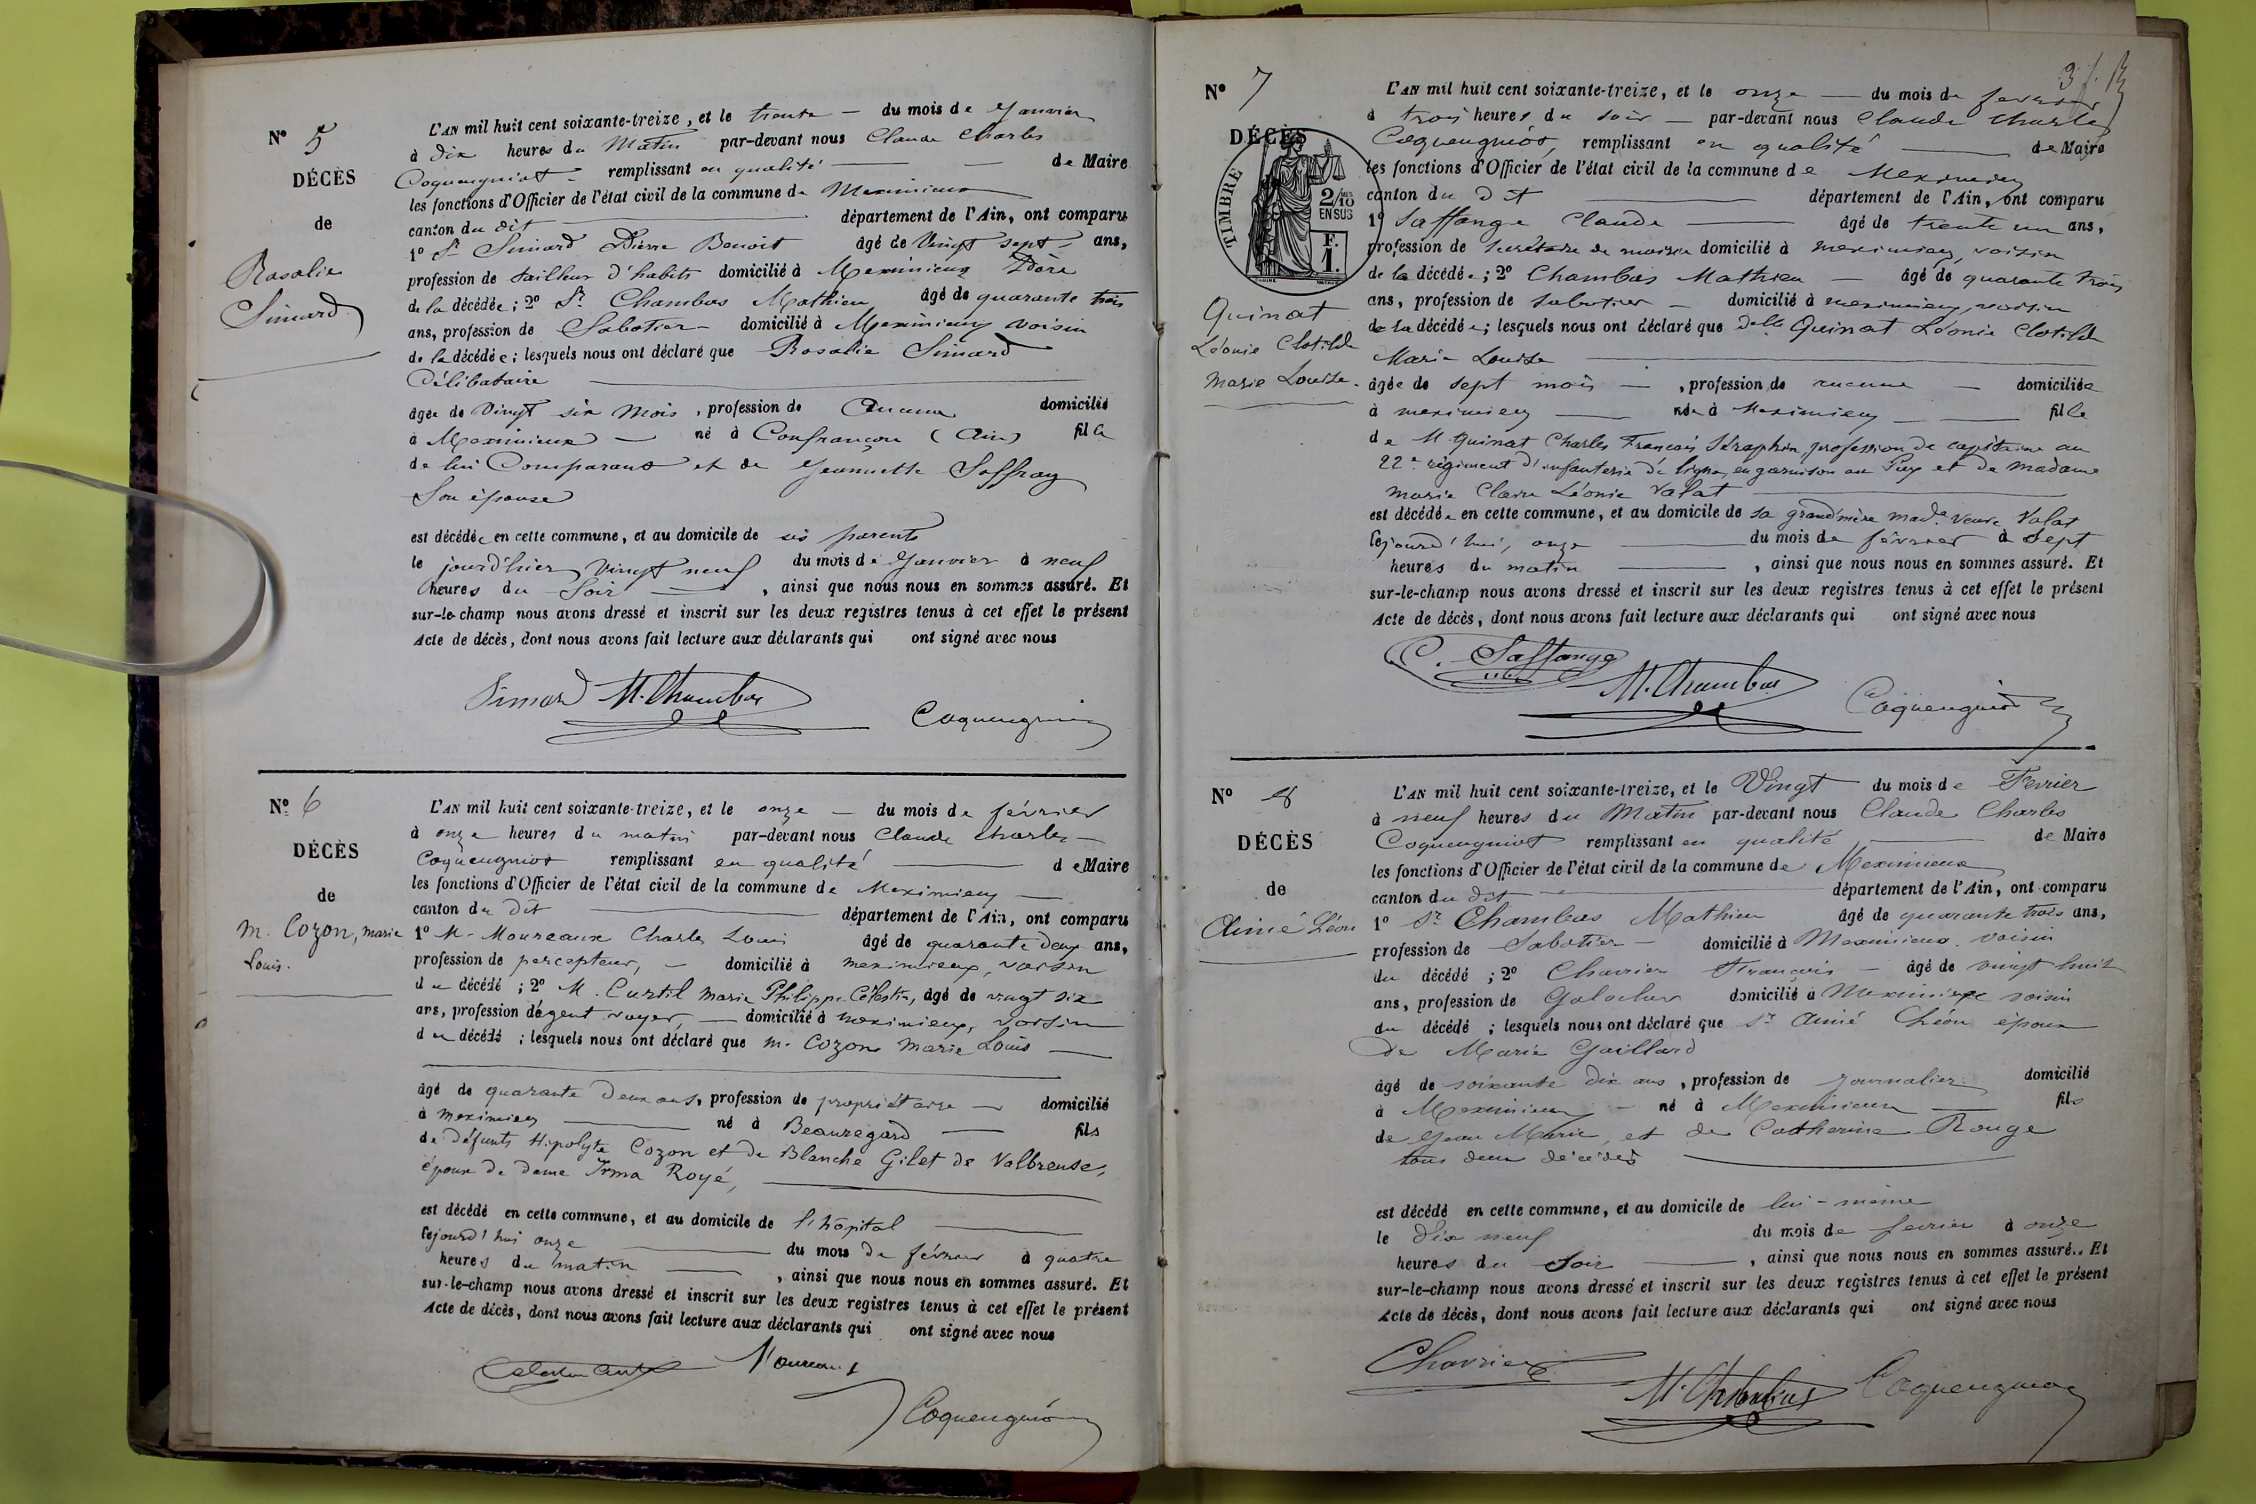 Nº 5
DÉCÈS
de
Rosalie
Simard
L'AN mil huit cent soixante-treize, et le trente — du mois de Janvier
à dix heures du Matin par-devant nous Claude Charles
Coquengniot remplissant en qualité — de Maire
les fonctions d'Officier de l'état civil de la commune de Meximieux
canton du dit — département de l'Ain, ont comparu
1º Sr Simard Pierre Benoit âgé de Vingt sept ans,
profession de tailleur d'habits domicilié à Meximieux Père
de la décédée ; 2º Sr Chambas Mathieu âgé de quarante trois
ans, profession de Sabotier — domicilié à Meximieux voisin
de la décédée ; lesquels nous ont déclaré que Rosalie Simard
Célibataire
âgée de Vingt six Mois, profession de Aucune domicilié
à Meximieux — né à Confrançon (Ain) fille
de lui Comparant et de Jeannette Soffray
Son épouse
est décédée en cette commune, et au domicile de ses parents
le jourd'hier vingt neuf du mois de Janvier à neuf
heures du Soir —, ainsi que nous nous en sommes assuré. Et
sur-le-champ nous avons dressé et inscrit sur les deux registres tenus à cet effet le présent
Acte de décès, dont nous avons fait lecture aux déclarants qui ont signé avec nous
Simard M. Chambas
Coquengniot
Nº 6
DÉCÈS
de
M. Cozon, marie
Louis.
L'AN mil huit cent soixante-treize, et le onze — du mois de février
à onze heures du matin par-devant nous Claude Charles
Coquengniot remplissant en qualité — de Maire
les fonctions d'Officier de l'état civil de la commune de Meximieux
canton du dit — département de l'Ain, ont comparu
1º M. Moureaux Charles Louis âgé de quarante deux ans,
profession de percepteur, — domicilié à meximieux, voisin
du décédé ; 2º M. Curtil Marie Philippe Célestin, âgé de vingt six
ans, profession d'agent voyer, — domicilié à meximieux, voisin
du décédé ; lesquels nous ont déclaré que m. Cozon Marie Louis —
âgé de quarante deux ans, profession de propriétaire — domicilié
à meximieux — né à Beauregard — fils
de défunts Hipolyte Cozon et de Blanche Gilet de Valbreuse,
époux de dame Irma Royé,
est décédé en cette commune, et au domicile de l'hôpital
le jourd'hui onze — du mois de février à quatre
heures du matin —, ainsi que nous nous en sommes assuré. Et
sur-le-champ nous avons dressé et inscrit sur les deux registres tenus à cet effet le présent
Acte de décès, dont nous avons fait lecture aux déclarants qui ont signé avec nous
Moureaux
Coquengniot
Nº 7
DÉCÈS
TIMBRE
2/10
EN SUS
F.
1.
Quinat
Léonie Clotilde
Marie Louise.
L'AN mil huit cent soixante-treize, et le onze — du mois de fevrier
à trois heures du soir — par-devant nous Claude Charles
Coquengniot, remplissant en qualité — de Maire
les fonctions d'Officier de l'état civil de la commune de Meximieux
canton du dit — département de l'Ain, ont comparu
1º Saffange Claude — âgé de trente un ans,
profession de secrétaire de mairie domicilié à meximieux, voisin
de la décédée ; 2º Chambas Mathieu — âgé de quarante trois
ans, profession de sabotier — domicilié à meximieux, voisin
de la décédée ; lesquels nous ont déclaré que Delle Quinat Léonie Clotilde
Marie Louise
âgée de sept mois —, profession de aucune — domiciliée
à meximieux — née à Meximieux — fille
de M. Quinat Charles François Séraphin profession de capitaine au
22e régiment d'infanterie de ligne, en garnison au Puy et de Madame
Marie Claire Léonie Valat
est décédée en cette commune, et au domicile de sa grand'mère made Veuve Valat
le jourd'hui, onze — du mois de février à sept
heures du matin —, ainsi que nous nous en sommes assuré. Et
sur-le-champ nous avons dressé et inscrit sur les deux registres tenus à cet effet le présent
Acte de décès, dont nous avons fait lecture aux déclarants qui ont signé avec nous
C. Saffange
M. Chambas
Coquengniot
Nº 8
DÉCÈS
de
Aimé Léon
L'AN mil huit cent soixante-treize, et le Vingt du mois de Fevrier
à neuf heures du Matin par-devant nous Claude Charles
Coquengniot remplissant en qualité — de Maire
les fonctions d'Officier de l'état civil de la commune de Meximieux
canton du dit — département de l'Ain, ont comparu
1º Sr Chambas Mathieu âgé de quarante trois ans,
profession de Sabotier — domicilié à Meximieux voisin
du décédé ; 2º Charrier François — âgé de vingt huit
ans, profession de Galocher domicilié à Meximieux voisin
du décédé ; lesquels nous ont déclaré que Sr Aimé Léon époux
de Marie Gaillard
âgé de soixante dix ans, profession de journalier domicilié
à Meximieux — né à Meximieux — fils
de Jean Marie, et de Catherine Rouge
tous deux décédés
est décédé en cette commune, et au domicile de lui-même
le dix neuf du mois de fevrier à onze
heures du Soir —, ainsi que nous nous en sommes assuré. Et
sur-le-champ nous avons dressé et inscrit sur les deux registres tenus à cet effet le présent
Acte de décès, dont nous avons fait lecture aux déclarants qui ont signé avec nous
Charrier
M. Chambas Coquengniot